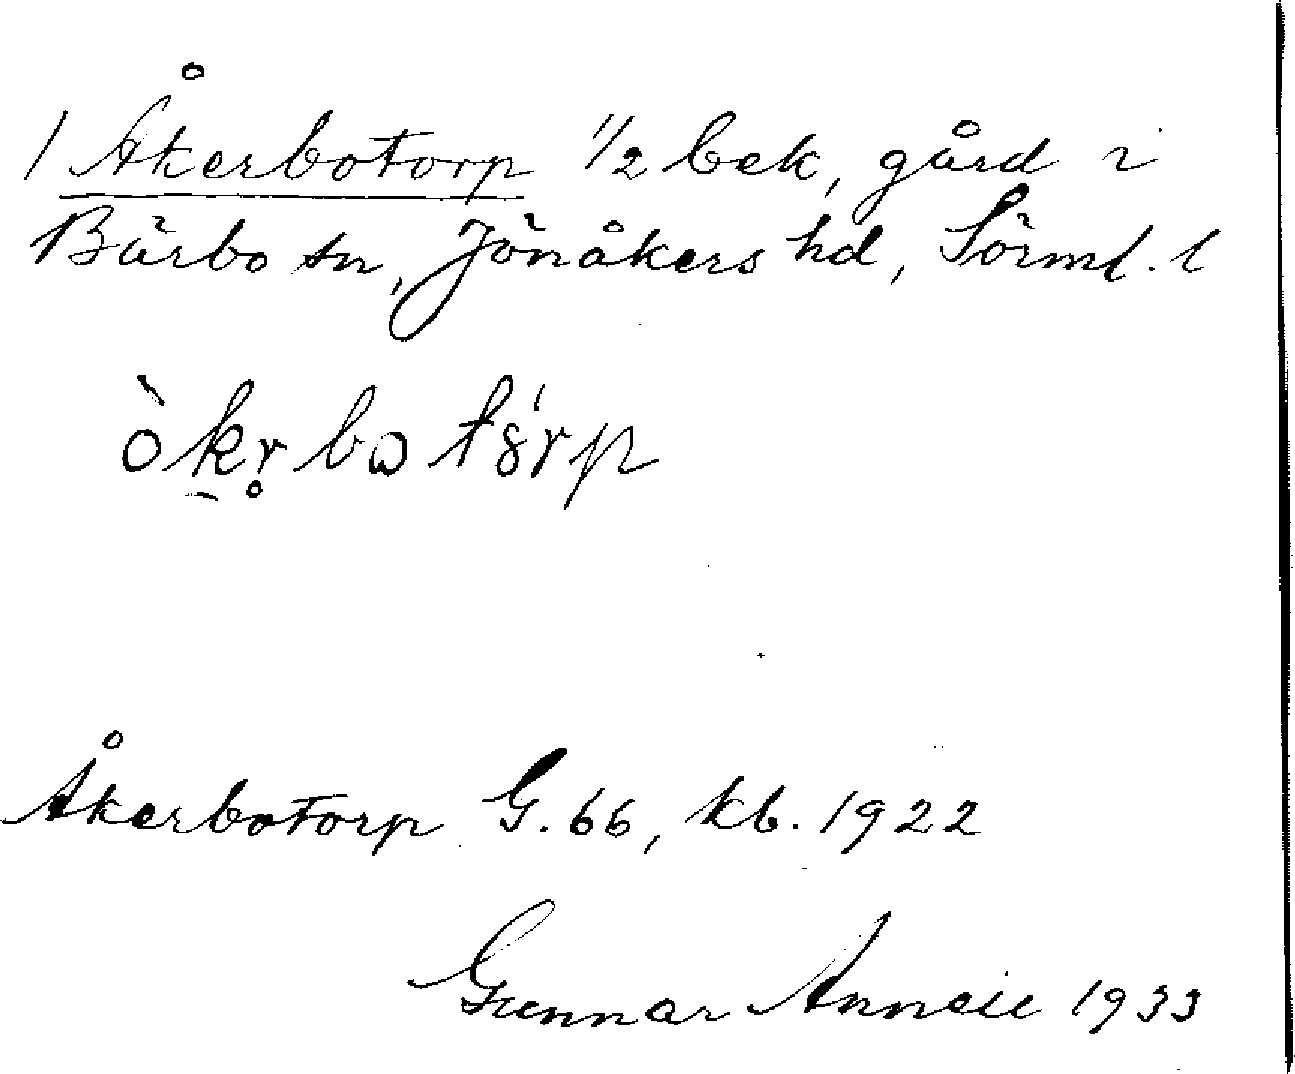 1 Åkerbotorp 1/2 bek, gård i
Bärbo sn, Jönåkers hd, Sörml. l
Åkerbotorp G. 66, kb. 1922
Gunnar Annell 1933